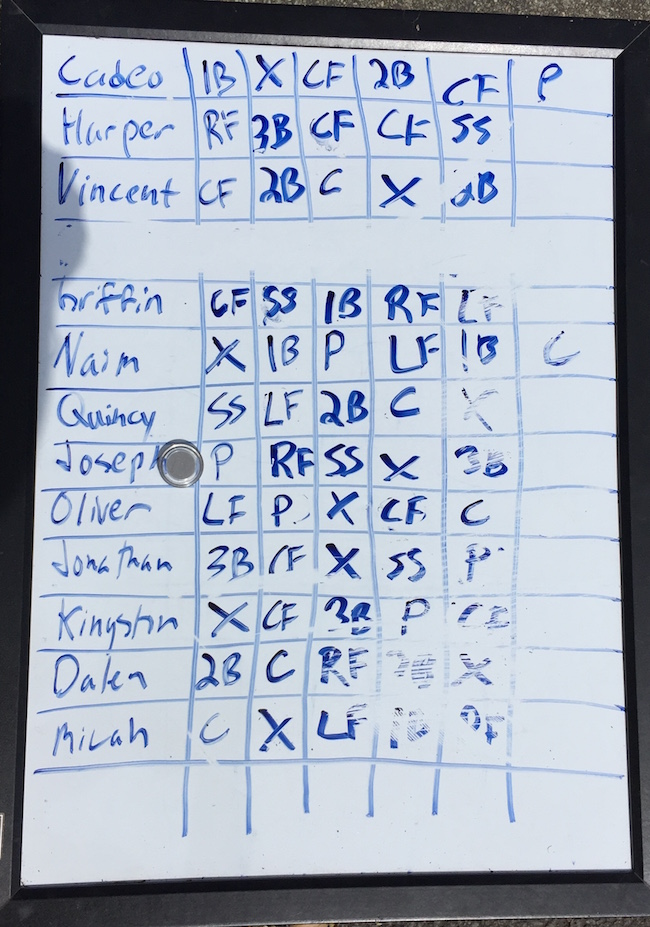 Cadeo 1B X CF 2B CF P
Harper RF 3B CF CF SS
Vincent CF 2B C X 2B
Griffin CF SS 1B RF LF
Naim X 1B P LF 1B C
Quincy SS LF 2B C X
Joseph P RF SS X 3B
Oliver LF P X CF C
Jonathan 3B CF X SS P
Kingston X CF 3B P
Dalen 2B C RF X
Micah C X LF 1B RF